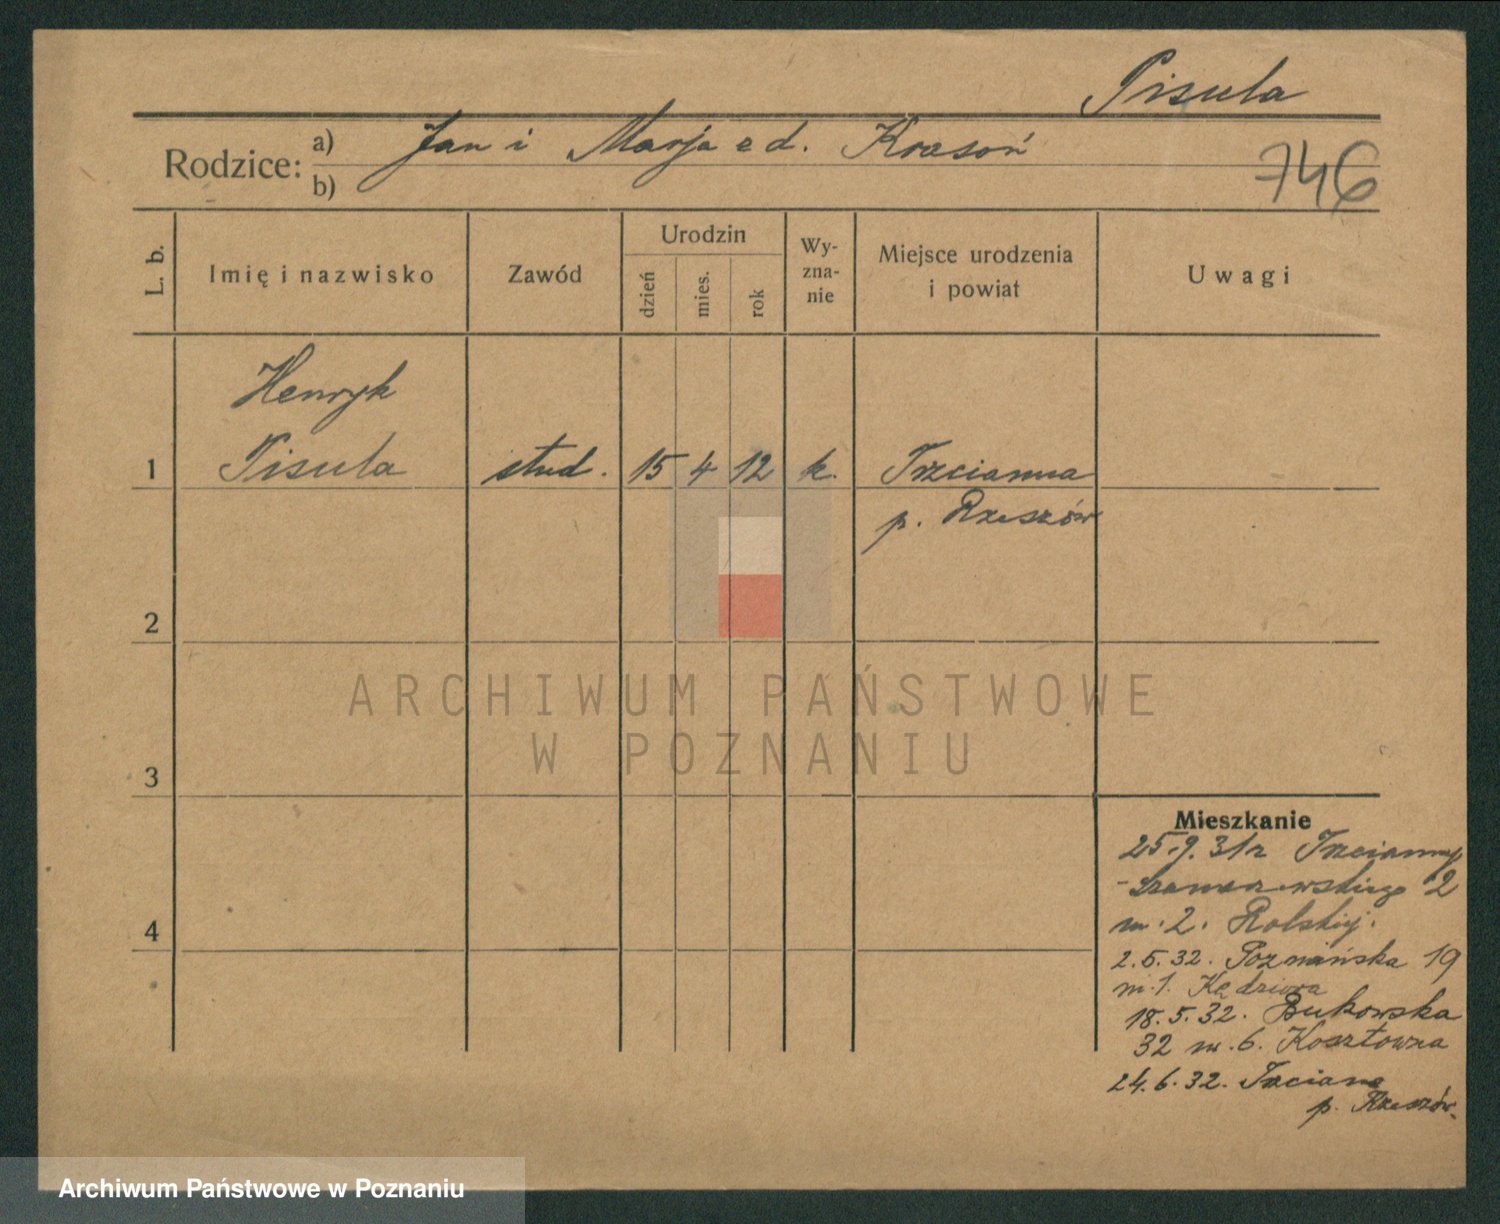 Pisula
Rodzice: a) Jan i Marja z d. Krasoń
b)
746
L. b. Imię i nazwisko Zawód Urodzin dzień mies. rok Wy-zna-nie Miejsce urodzenia i powiat Uwagi
Henryk
1 Pisula stud. 15 4 12 k. Trzcianna
p. Rzeszów
2
ARCHIWUM PAŃSTWOWE
W POZNANIU
3
Mieszkanie
25.9.31r Trzcianny
2
4 m. 2. Rolskiej.
2.5.32. Poznańska 19
m. 1. Kędziora
18.5.32. Bukowska
32 m. 6. Kosztowna
24.6.32. Trzciana
p. Rzeszów.
Archiwum Państwowe w Poznaniu